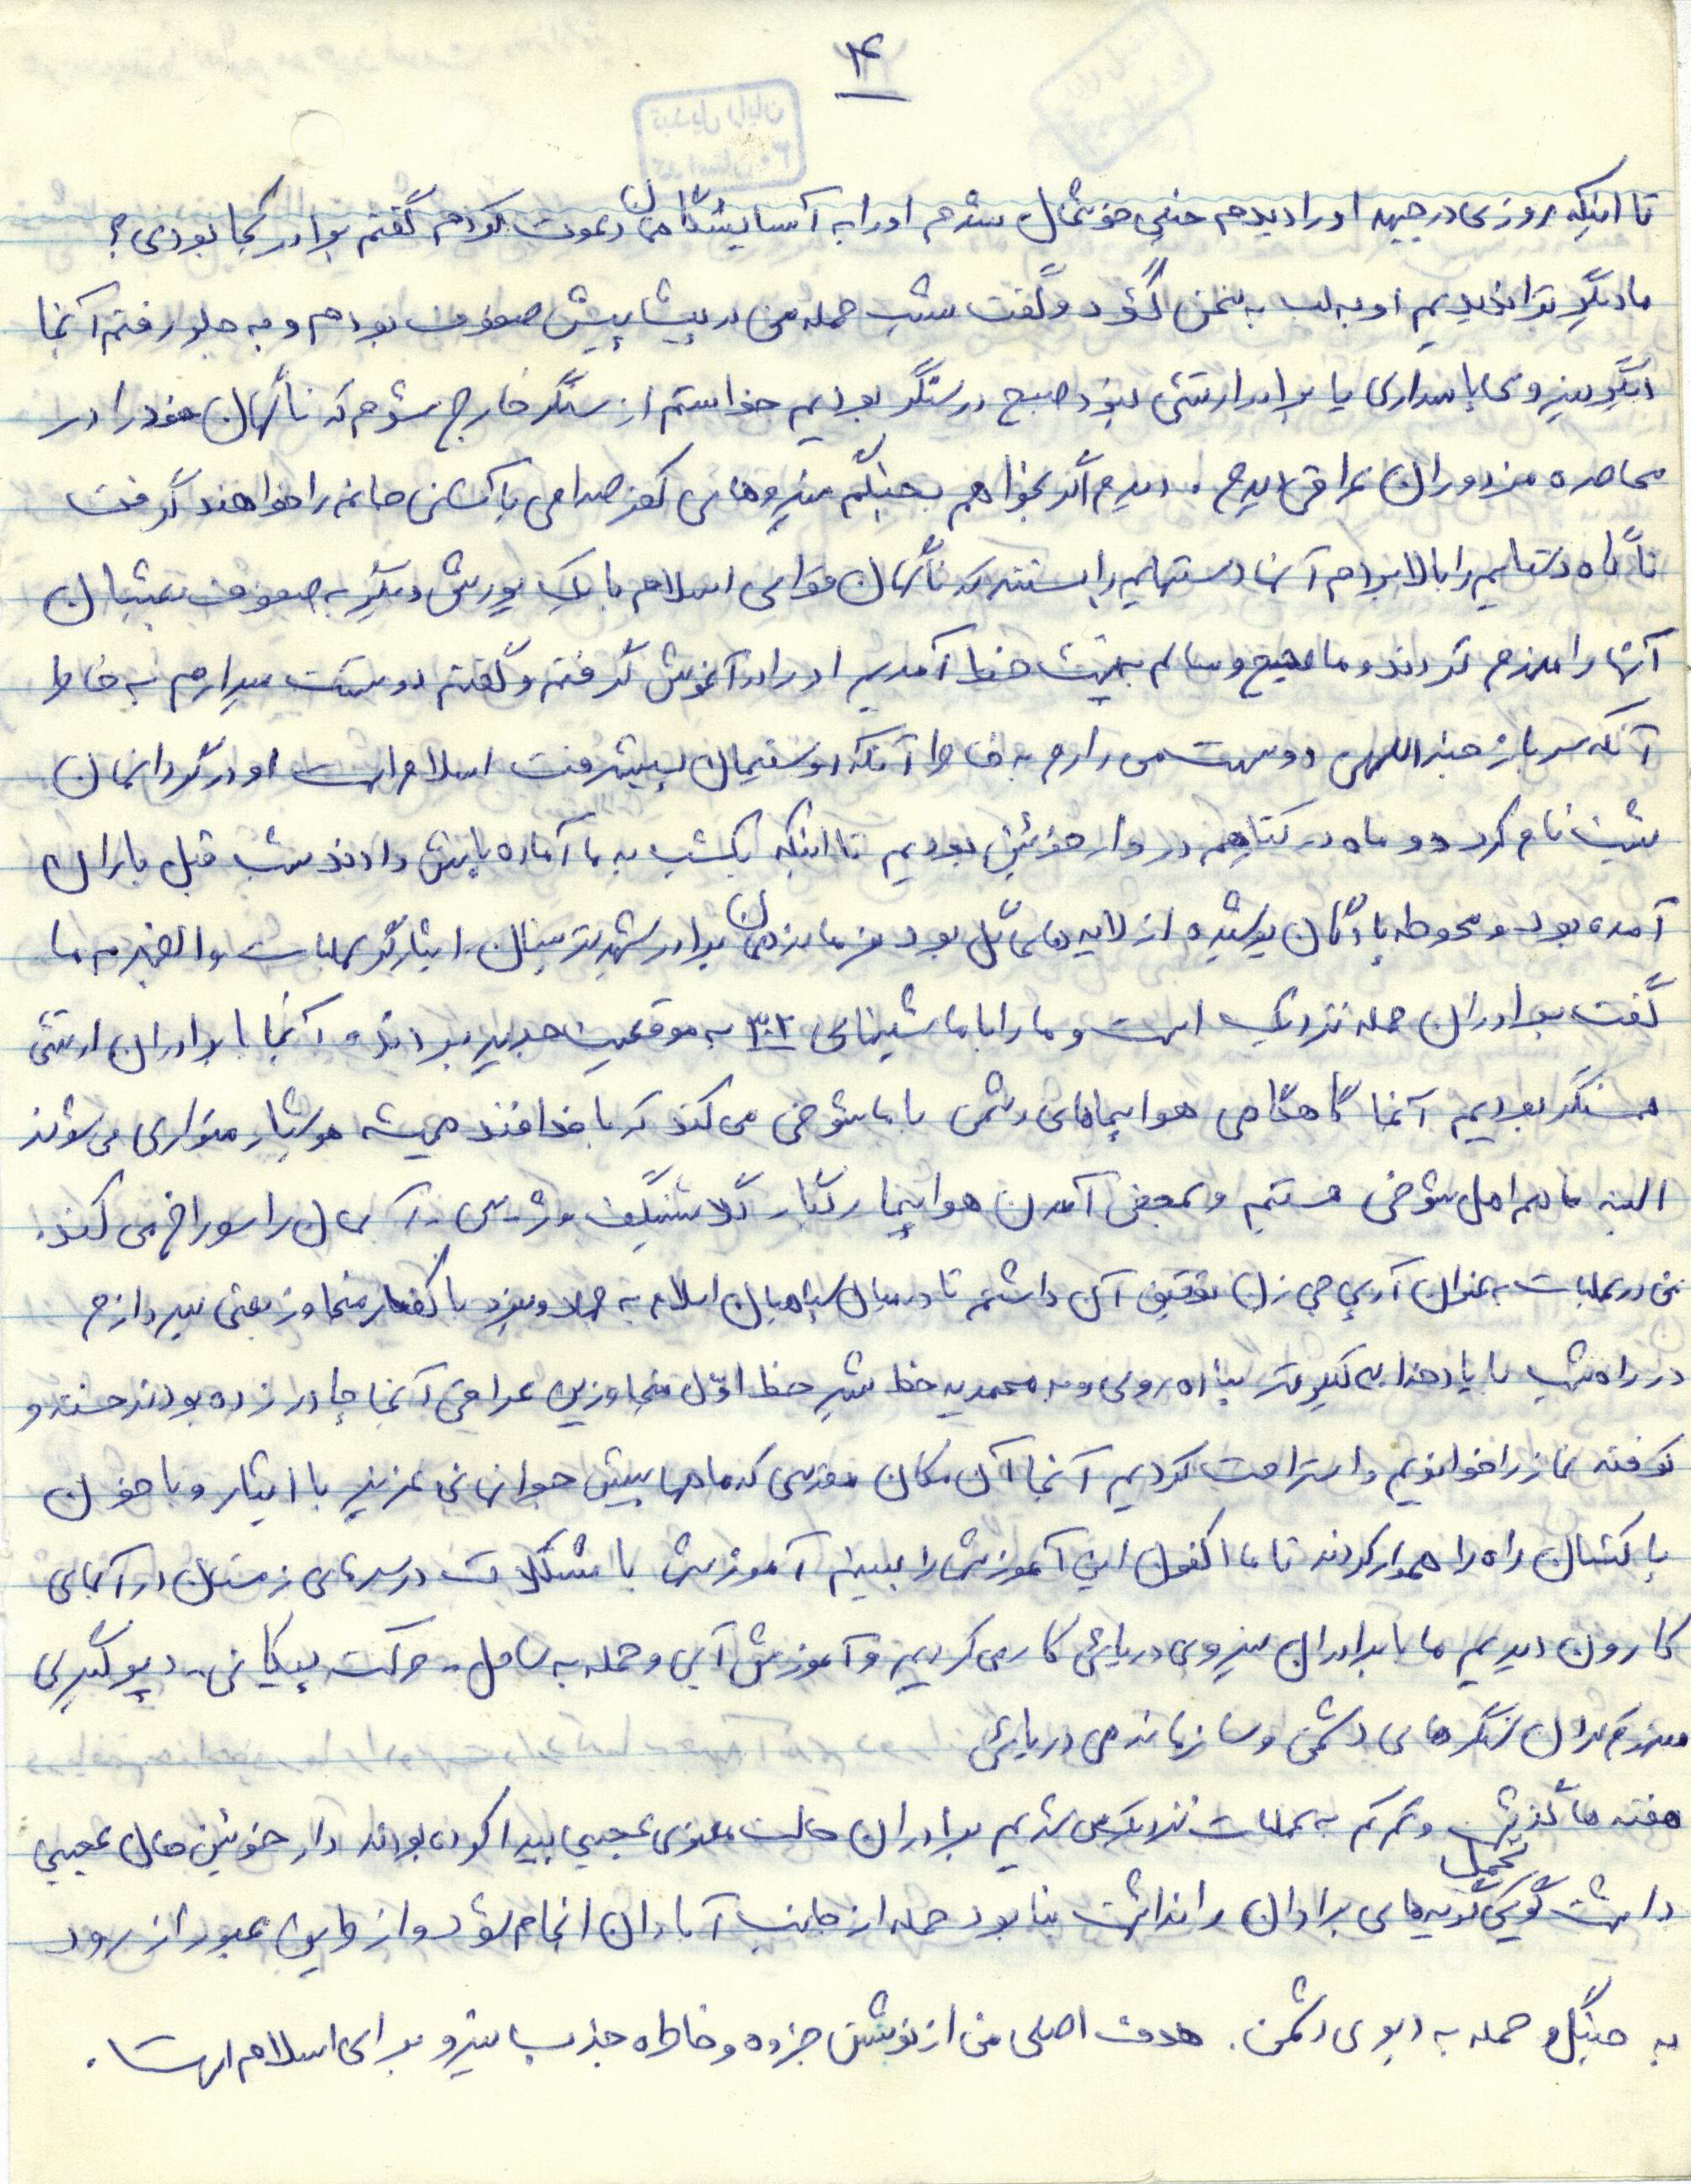 ۴
تا اینکه روزی در جبهه او را دیدم خیلی خوشحال شدم او را به آسایشگاهمان دعوت کردم گفتم برادر کجا بودی؟
ما دیگر ترا ندیدیم او لب به سخن گشود و گفت شب حمله من در پیشاپیش صفوف بودم و به جلو رفتم آنجا
دیگر نیروی پاسداری یا برادر ارتشی نبود صبح در سنگر بودیم خواستم از سنگر خارج شوم که ناگهان خود را در
محاصره مزدوران عراقی دیدم . دیدم اگر بخواهم بجنگم نیروهای کفر صدامی با کشتن جانم را خواهند گرفت
ناگاه دستهایم را بالا بردم آنها دستهایم را بستند که ناگهان قوای اسلام با یک یورش دیگر به صفوف بعثیان
آنها را منهزم کردند و ما صحیح و سالم به پشت خط آمدیم او را در آغوش گرفتم و گفتم دوستت میدارم به خاطر
آنکه سرباز جندالهی دوستت می دارم به خاطر آنکه دوستیمان پیشرفت اسلام است او در گردانمان
ثبت نام کرد دو ماه در کنار هم در دارخوئین بودیم تا اینکه یکشب به ما آماده باش دادند شب قبل باران
آمده بود و محوطه پادگان پوشیده از لایه های گل بود فرماندهمان برادر شهید ترسنان ایثارگر عملیات والفجر به ما
گفت برادران حمله نزدیک است و ما را با ماشینهای ۳۰۲ به موقعیت جدید بردند . آنجا با برادران ارتشی
همسنگر بودیم آنجا گاهگاهی هواپیماهای دشمن با ما شوخی می کند که با پدافند همیشه هوشیار متواری می شوند
البته ما هم اهل شوخی هستیم و بمحض آمدن هواپیما رگبار کلاشینکف و ژ-سی - آسمان را سوراخ می کند.
من در عملیات به عنوان آرپی جی زن توفیق آن داشتم تا در میان سپاهیان اسلام به جهاد و نبرد با کفار متجاوز بعثی بپردازم
در راه شب با یاد خدا به کیلومتر پیاده روی و به محمدیه خط شیر خط اول متجاوزین عراقی آنجا چادر زده بودند خسته و
کوفته نماز را خواندیم و استراحت کردیم آنجا آن مکان مقدسی که ماهها پیش جوانهائی عزیز با ایثار و با خون
پاکشان راه را هموار کردند تا ما اکنون این آموزش را ببینیم آموزش با مشکلات در سرمای زمستان در آبهای
کارون دیدیم ما با برادران نیروی دریائی کار می کردیم و آموزش آبی و حمله به ساحل - حرکت پیکانی - دپوگیری
منهدم کردن سنگرهای دشمن و سازماندهی دریائی
هفته ها گذشت و کم کم به عملیات نزدیک می شدیم برادران حالت معنوی عجیبی پیدا کرده بودند دارخوئین حال عجیبی
داشت گویی تحمل گریه های برادران را نداشت بنا بود حمله از جانب آبادان انجام شود و از طریق عبور از رود
به جنگل و حمله به دپوی دشمن . هدف اصلی من از نوشتن جزوه و خاطره جذب نیرو برای اسلام است .